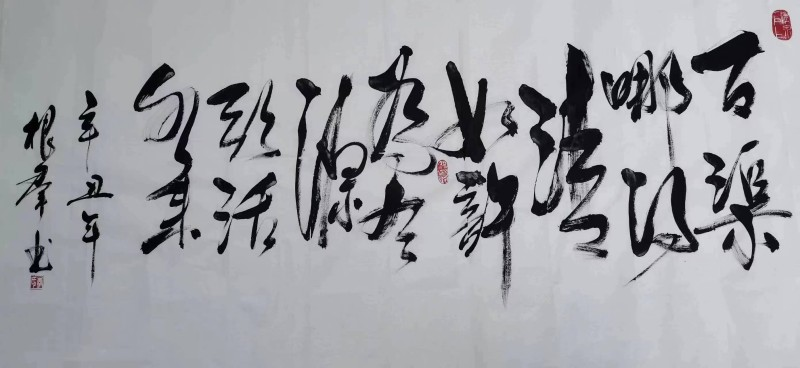 问渠
哪得
清
如许
为有
源
头活
水来
辛丑年
根群书